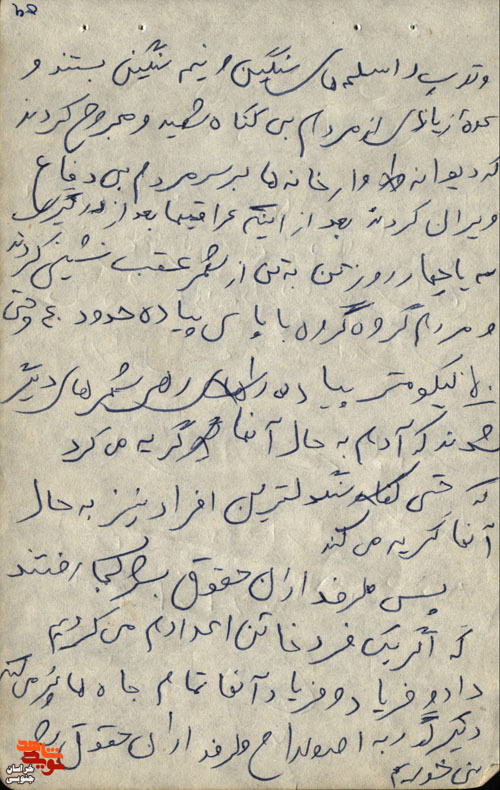 ۶۸
و توپ و اسلحه های سنگین و نیمه سنگین بستند و
عده زیادی از مردم بی گناه شهید و مجروح کردند
که دیوانه وار خانه ها بر سر مردم بی دفاع
ویران کردند بعد از اینکه عراقیها بعد از درگیری
سه یا چهار روز تن به تن از شهر عقب نشینی کردند
و مردم گروه گروه با پای پیاده حدود ۴۰ و حتی
کیلومتر پیاده راهی شهرهای دیگر
شدند که آدم به حال آنها گریه می کرد
که حتی سنگدلترین افراد نیز به حال
آنها گریه می کند
پس طرفداران حقوق بشر کجا رفتند
که اگر یک فرد خائن اعدام می کردیم
داد و فریاد و فریاد آنها تمام جاه ها پر می کند
دیگر گور به اصطلاح طرفداران حقوق بشر
نمی خوریم
شاهد
خراسان جنوبی